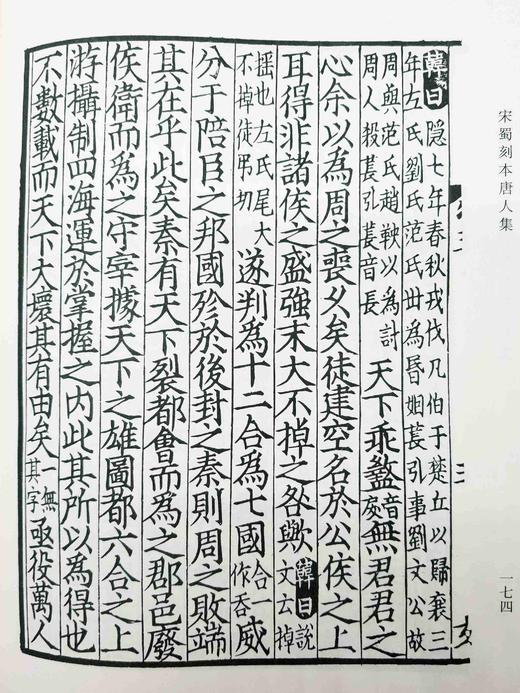 宋蜀刻本唐人集
一七四
韓曰隱七年春秋戎伐凡伯于楚丘以歸襄三
年左氏劉氏范氏丗為昬姻萇弘事劉文公故
周與范氏趙鞅以為討
周人殺萇弘萇音長
天下乖盭音戾無君君之
心余以為周之喪久矣徒建空名於公侯之上
耳得非諸侯之盛強末大不掉之咎歟韓曰說文云掉
搖也左氏尾大不掉徒弔切遂判為十二合為七國合一作吞威
分于陪臣之邦國殄於後封之秦則周之敗端
其在乎此矣秦有天下裂都會而為之郡邑廢
侯衛而為之守宰據天下之雄圖都六合之上
游攝制四海運於掌握之內此其所以為得也
不數載而天下大壞其有由矣一無其字亟役萬人